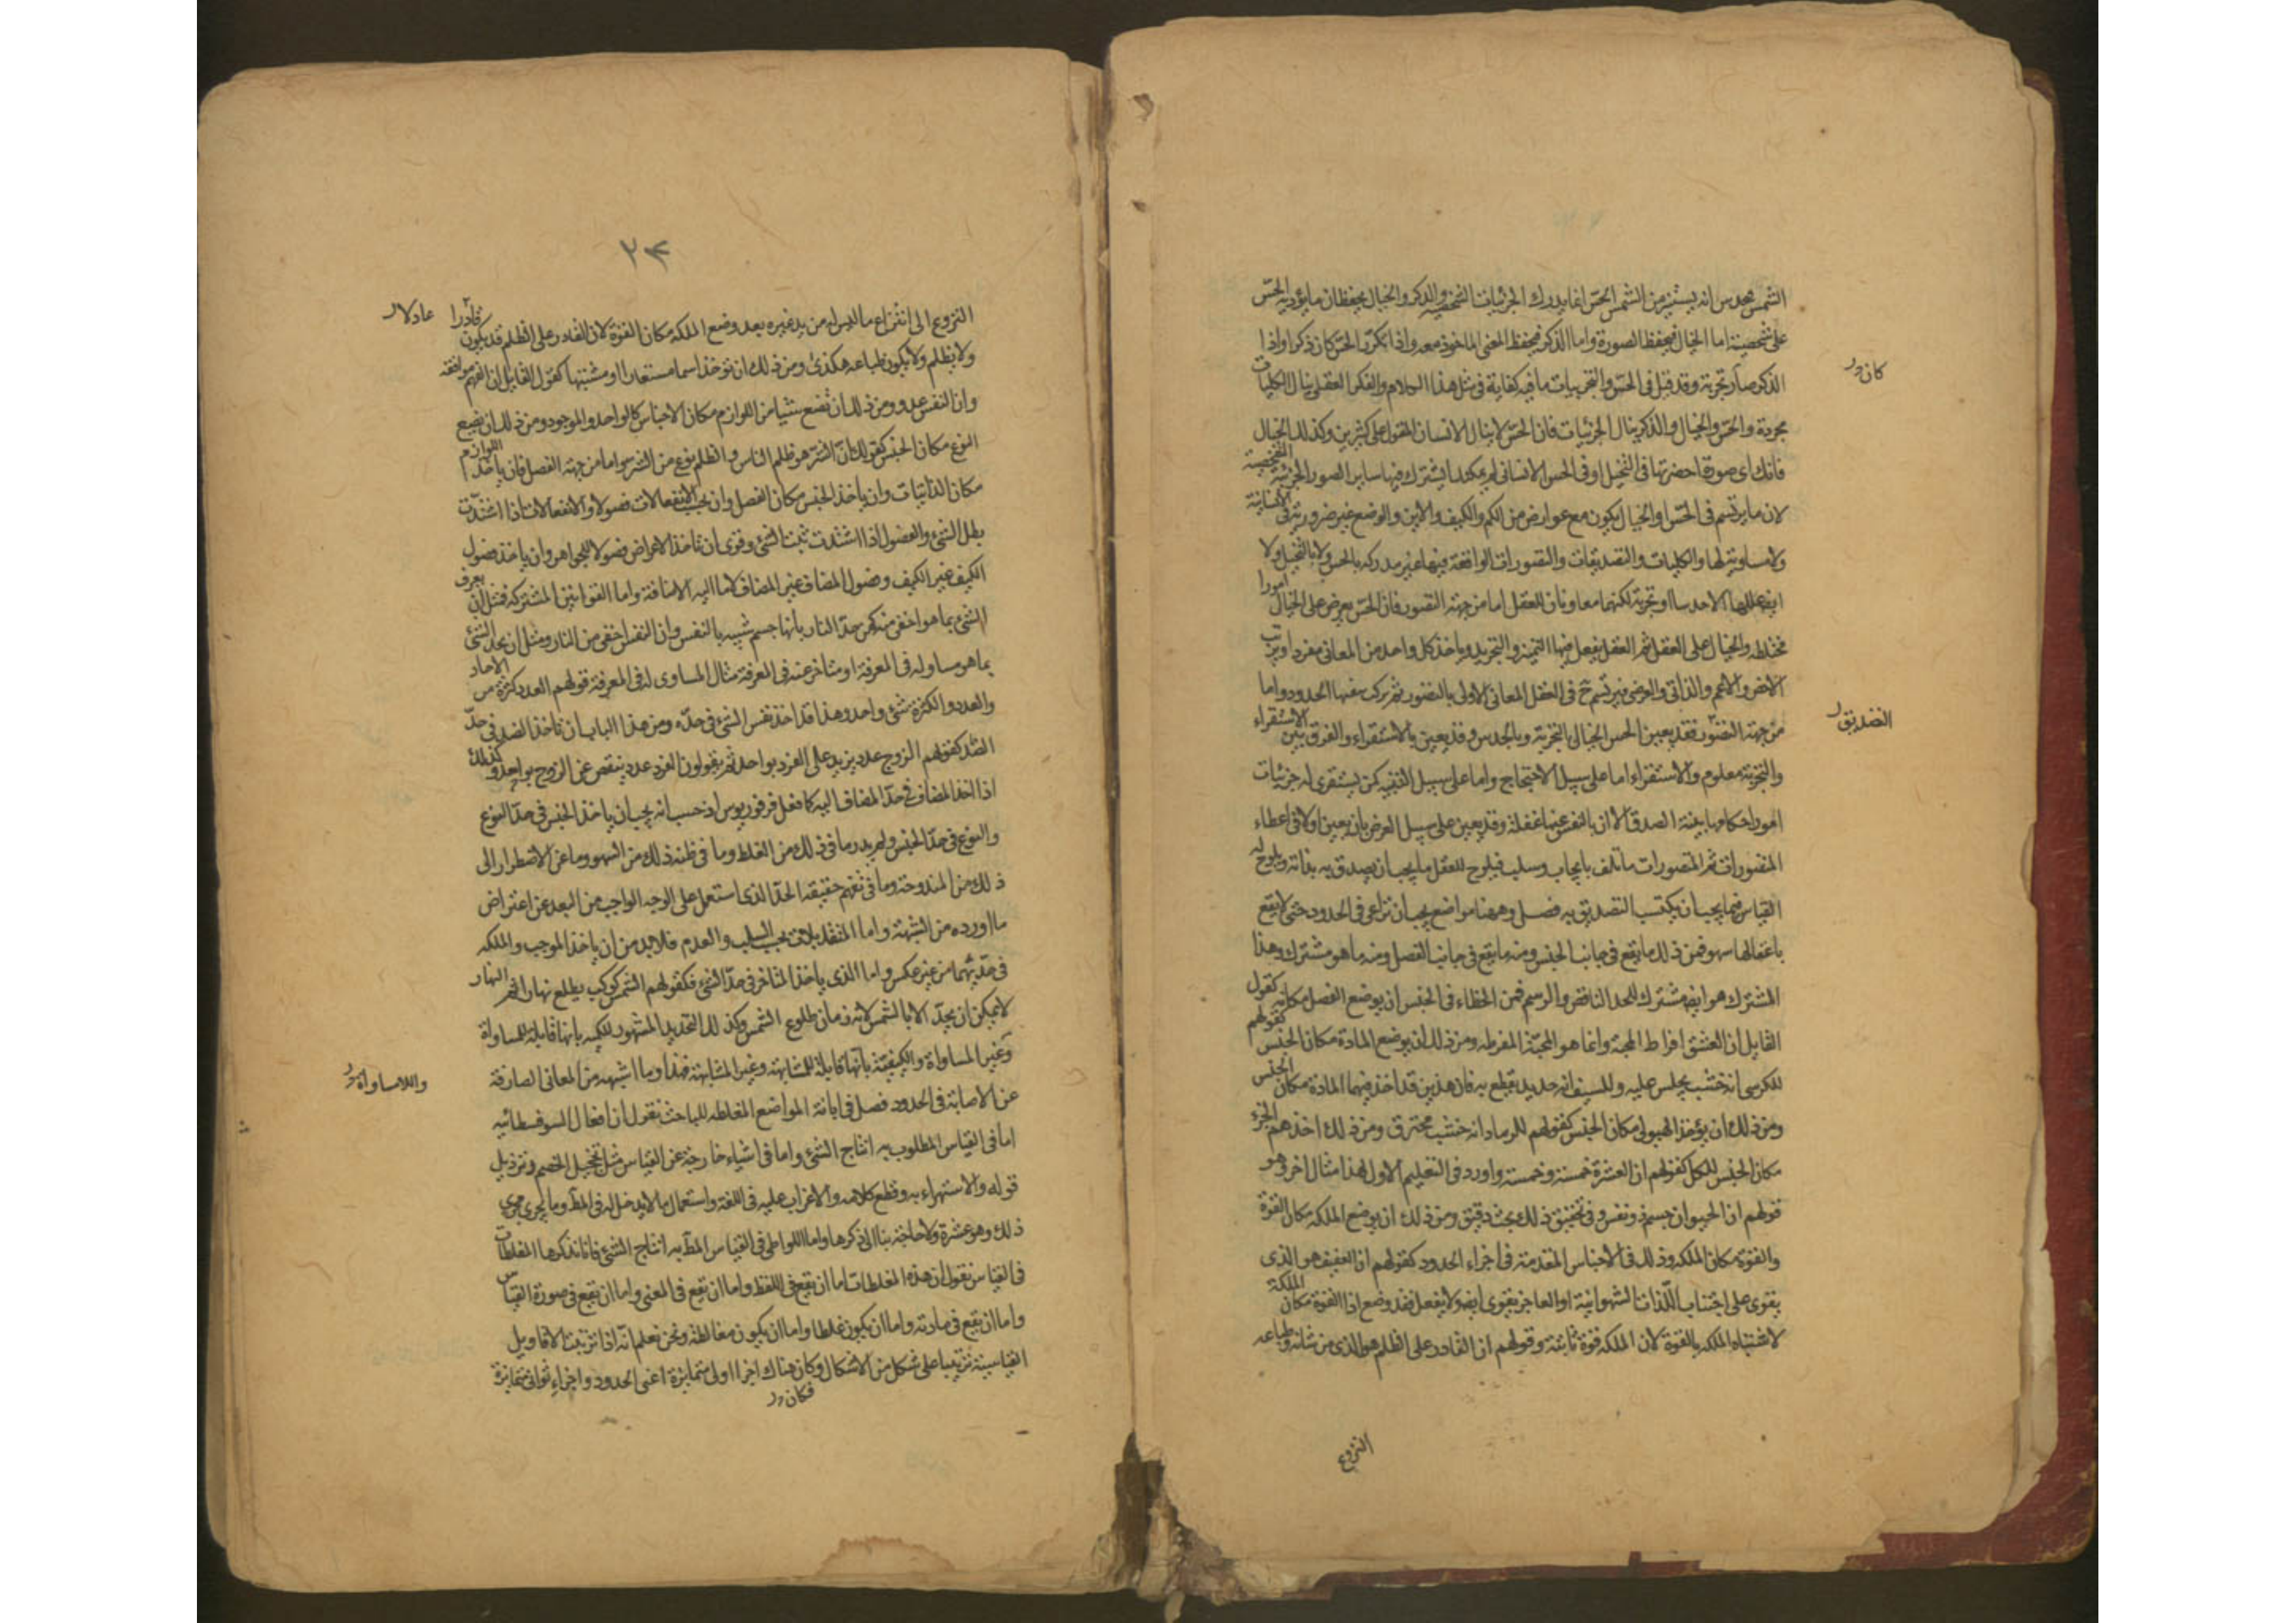 الشمس فيحدس انه يستنير من الشمس الحس انما يدرك الجزئيات الشخصية والذكر والخيال يحفظان ما يؤديه الحس
على شخصيته اما الخيال فيحفظ الصورة واما الذكر فيحفظ المعنى الماخوذ معه واذا تكرر الحس كان ذكرا واذا
كان
الذكر صار تجربة وقد قيل فى الحس والتجربيات ما فيه كفاية فى مثل هذا الكلام والفكر العقلى ينال الكليات
مجردة والحس والخيال والذكر ينال الجزئيات فان الحس لا ينال الانسان المقول على كثيرين وكذلك الخيال
فانك اى صورة احضرتها فى التخيل او فى الحس الانسانى لم يمكنك ان يشترك فيها ساير الصور الجزئية الشخصية
لان ما يرتسم فى الحس او الخيال يكون مع عوارض من الكم والكيف والاين والوضع غير ضرورية فى الانسانية
ولا مساوية لها والكليات والتصديقات والتصورات الواقعة فيها غير مدركة بالحس ولا بالتخيل ولا
ايضا عللها الا حدسا او تجربة لكنهما معاونان للعقل اما من جهة التصور فان الحس يعرض على الخيال امورا
مختلطة والخيال على العقل ثم العقل يفعل فيها التميز والتجريد وياخذ كل واحد من المعانى مفردا ويرتب
الاخص والاعم والذاتى والعرضى فيرتسم ح فى العقل المعانى الاولى بالتصور ثم يركب منها الحدود واما
التصديق
من جهة التصور فقد يعين الحس الخيال بالتجربة وبالحدس وقد يعين بالاستقراء والفرق بين الاستقراء
والتجربة معلوم والاستقراء اما على سبيل الاحتجاج واما على سبيل التنبيه كمن يستقرى له جزئيات
امور احكامها بينة الصدق الا ان بالنفس عنها غفلة وقد يعين على سبيل العرض بان يعين اولا فى اعطاء
المتصورات ثم المتصورات ما تلف بايجاب وسلب فيلوح للعقل ما يجب ان يصدق به بذاته ويلوح له
القياس فيما يجب ان يكتسب التصديق به فصل وههنا مواضع يجب ان تراعى فى الحدود حتى لا يقع
باغفالها سهو فمن ذلك ما يقع فى جانب الجنس ومنه ما يقع فى جانب الفصل ومنه ما هو مشترك وهذا
المشترك هو ايضا مشترك للحد الناقص والرسم فمن الخطاء فى الجنس ان يوضع الفصل مكانه كقول
القايل ان العشق افراط المحبة وانما هو المحبة المفرطة ومن ذلك ان يوضع المادة مكان الجنس كقولهم
للكرسى انه خشب يجلس عليه وللسيف انه حديد يقطع به فان هذين قد اخذ فيهما المادة مكان الجنس
ومن ذلك ان يؤخذ الهيولى مكان الجنس كقولهم للرماد انه خشب محترق ومن ذلك اخذهم الجزء
مكان الجنس للكل كقولهم ان العشرة خمسة وخمسة واورد فى التعليم الاول لهذا مثال اخر وهو
قولهم ان الحيوان جسم ذو نفس وفى تحقيق ذلك بحث دقيق ومن ذلك ان يوضع الملكة مكان القوة
والقوة مكان الملكة وذلك فى الاجناس المقدمة فى اجزاء الحدود كقولهم ان العفيف هو الذى
يقوى على اجتناب اللذات الشهوانية او الفاجر يقوى ايضا ولا يفعل فقد وضع اذا القوة مكان الملكة
لاشتباه الملكة بالقوة لان الملكة قوة ثابتة وقولهم ان القادر على الظلم هو الذى من شانه وطباعه
النزوع
٢٣
النزوع الى انتزاع ما ليس له من يد غيره بعد وضع الملكة مكان القوة لان القادر على الظلم قد يكون قادرا
عادلا
ولا يظلم ولا يكون طباعه هكذى ومن ذلك ان توخذ اسما مستعارا او مشتبها كقول القايل ان الفهم موافقة
وان النفس عدد ومن ذلك ان تضع شيئا من اللوازم مكان الاجناس كالواحد والموجود ومن ذلك ان يضع
النوع مكان الجنس كقولك ان الشر هو ظلم الناس والظلم نوع من الشر واما من جهة الفصل فان ياخذ اللوازم
مكان الذاتيات وان ياخذ الجنس مكان الفصل وان يحسب الانفعالات فصولا والانفعالات اذا اشتدت
بطل الشئ والفصول اذا اشتدت ثبت الشئ وقوى ان تاخذ الاعراض فصولا للجواهر وان ياخذ فصول
الكيف غير الكيف وفصول المضاف غير المضاف لا ما اليه الاضافة واما القوانين المشتركة فمثل ان يعرف
الشئ بما هو اخفى منه كمن يحد النار بانها جسم شبيه بالنفس وان النفس اخفى من النار ومثل ان يحد الشئ
بما هو مساو له فى المعرفة او متاخر عنه فى المعرفة مثال المساوى له فى المعرفة قولهم العدد كثرة من الاحاد
والعدد والكثرة شئ واحد وهذا قد اخذ نفس الشئ فى حده ومن هذا الباب ان تاخذ الضد فى حد
الضد كقولهم الزوج عدد يزيد على الفرد بواحد ثم يقولون الفرد عدد ينقص عن الزوج بواحد وكذلك
اذا اخذ المضاف فى حد المضاف اليه كما فعل فرفوريوس اذ حسب انه يجب ان ياخذ الجنس فى حد النوع
والنوع فى حد الجنس ولم يدر ما فى ذلك من الغلط وما فى ظنه ذلك من السهو وما عن الاضطرار الى
ذلك من المندوحة وما فى تفهم حقيقة الحد الذى استعمل على الوجه الواجب من البعد عن اعتراض
ما اورده من الشبهة واما المتقابلات بحسب السلب والعدم فلا بد من ان ياخذ الموجب والملكة
فى حديهما من غير عكس واما الذى ياخذ المتاخر فى حد الشئ فكقولهم الشمس كوكب يطلع نهارا ثم النهار
لا يمكن ان يحد الا بالشمس لانه زمان طلوع الشمس وكذلك التحديد المشهور للكمية بانها قابلة للمساواة
واللامساواة
وغير المساواة والكيفية بانها قابلة للمشابهة وغير المشابهة فهذا وما اشبهه من المعانى الصارفة
عن الاصابة فى الحدود فصل فى ابانة المواضع المغلطة للباحث نقول ان افعال السوفسطائيه
اما فى القياس المطلوب به انتاج الشئ واما فى اشياء خارجة عن القياس مثل تخجيل الخصم وترذيل
قوله والاستهزاء به وقطع كلامه والاغراب عليه فى اللغة واستعمال ما لا يدخل له فى المط وما يجرى مجرى
ذلك وهو عشرة ولا حاجة بنا الى ذكرها واما اللواتى فى القياس المط به انتاج الشئ فانا نذكرها المغلطات
فى القياس نقول ان هذه المغلطات اما ان يقع فى اللفظ واما ان تقع فى المعنى واما ان تقع فى صورة القياس
واما ان يقع فى مادته واما ان يكون غلطا واما ان يكون مغالطة ونحن نعلم انه اذا ترتبت الاقاويل
القياسية ترتيبا على شكل من الاشكال وكان هناك اجزا اولى متمايزة اعنى الحدود واجزاء ثوانى متمايزة
فكان